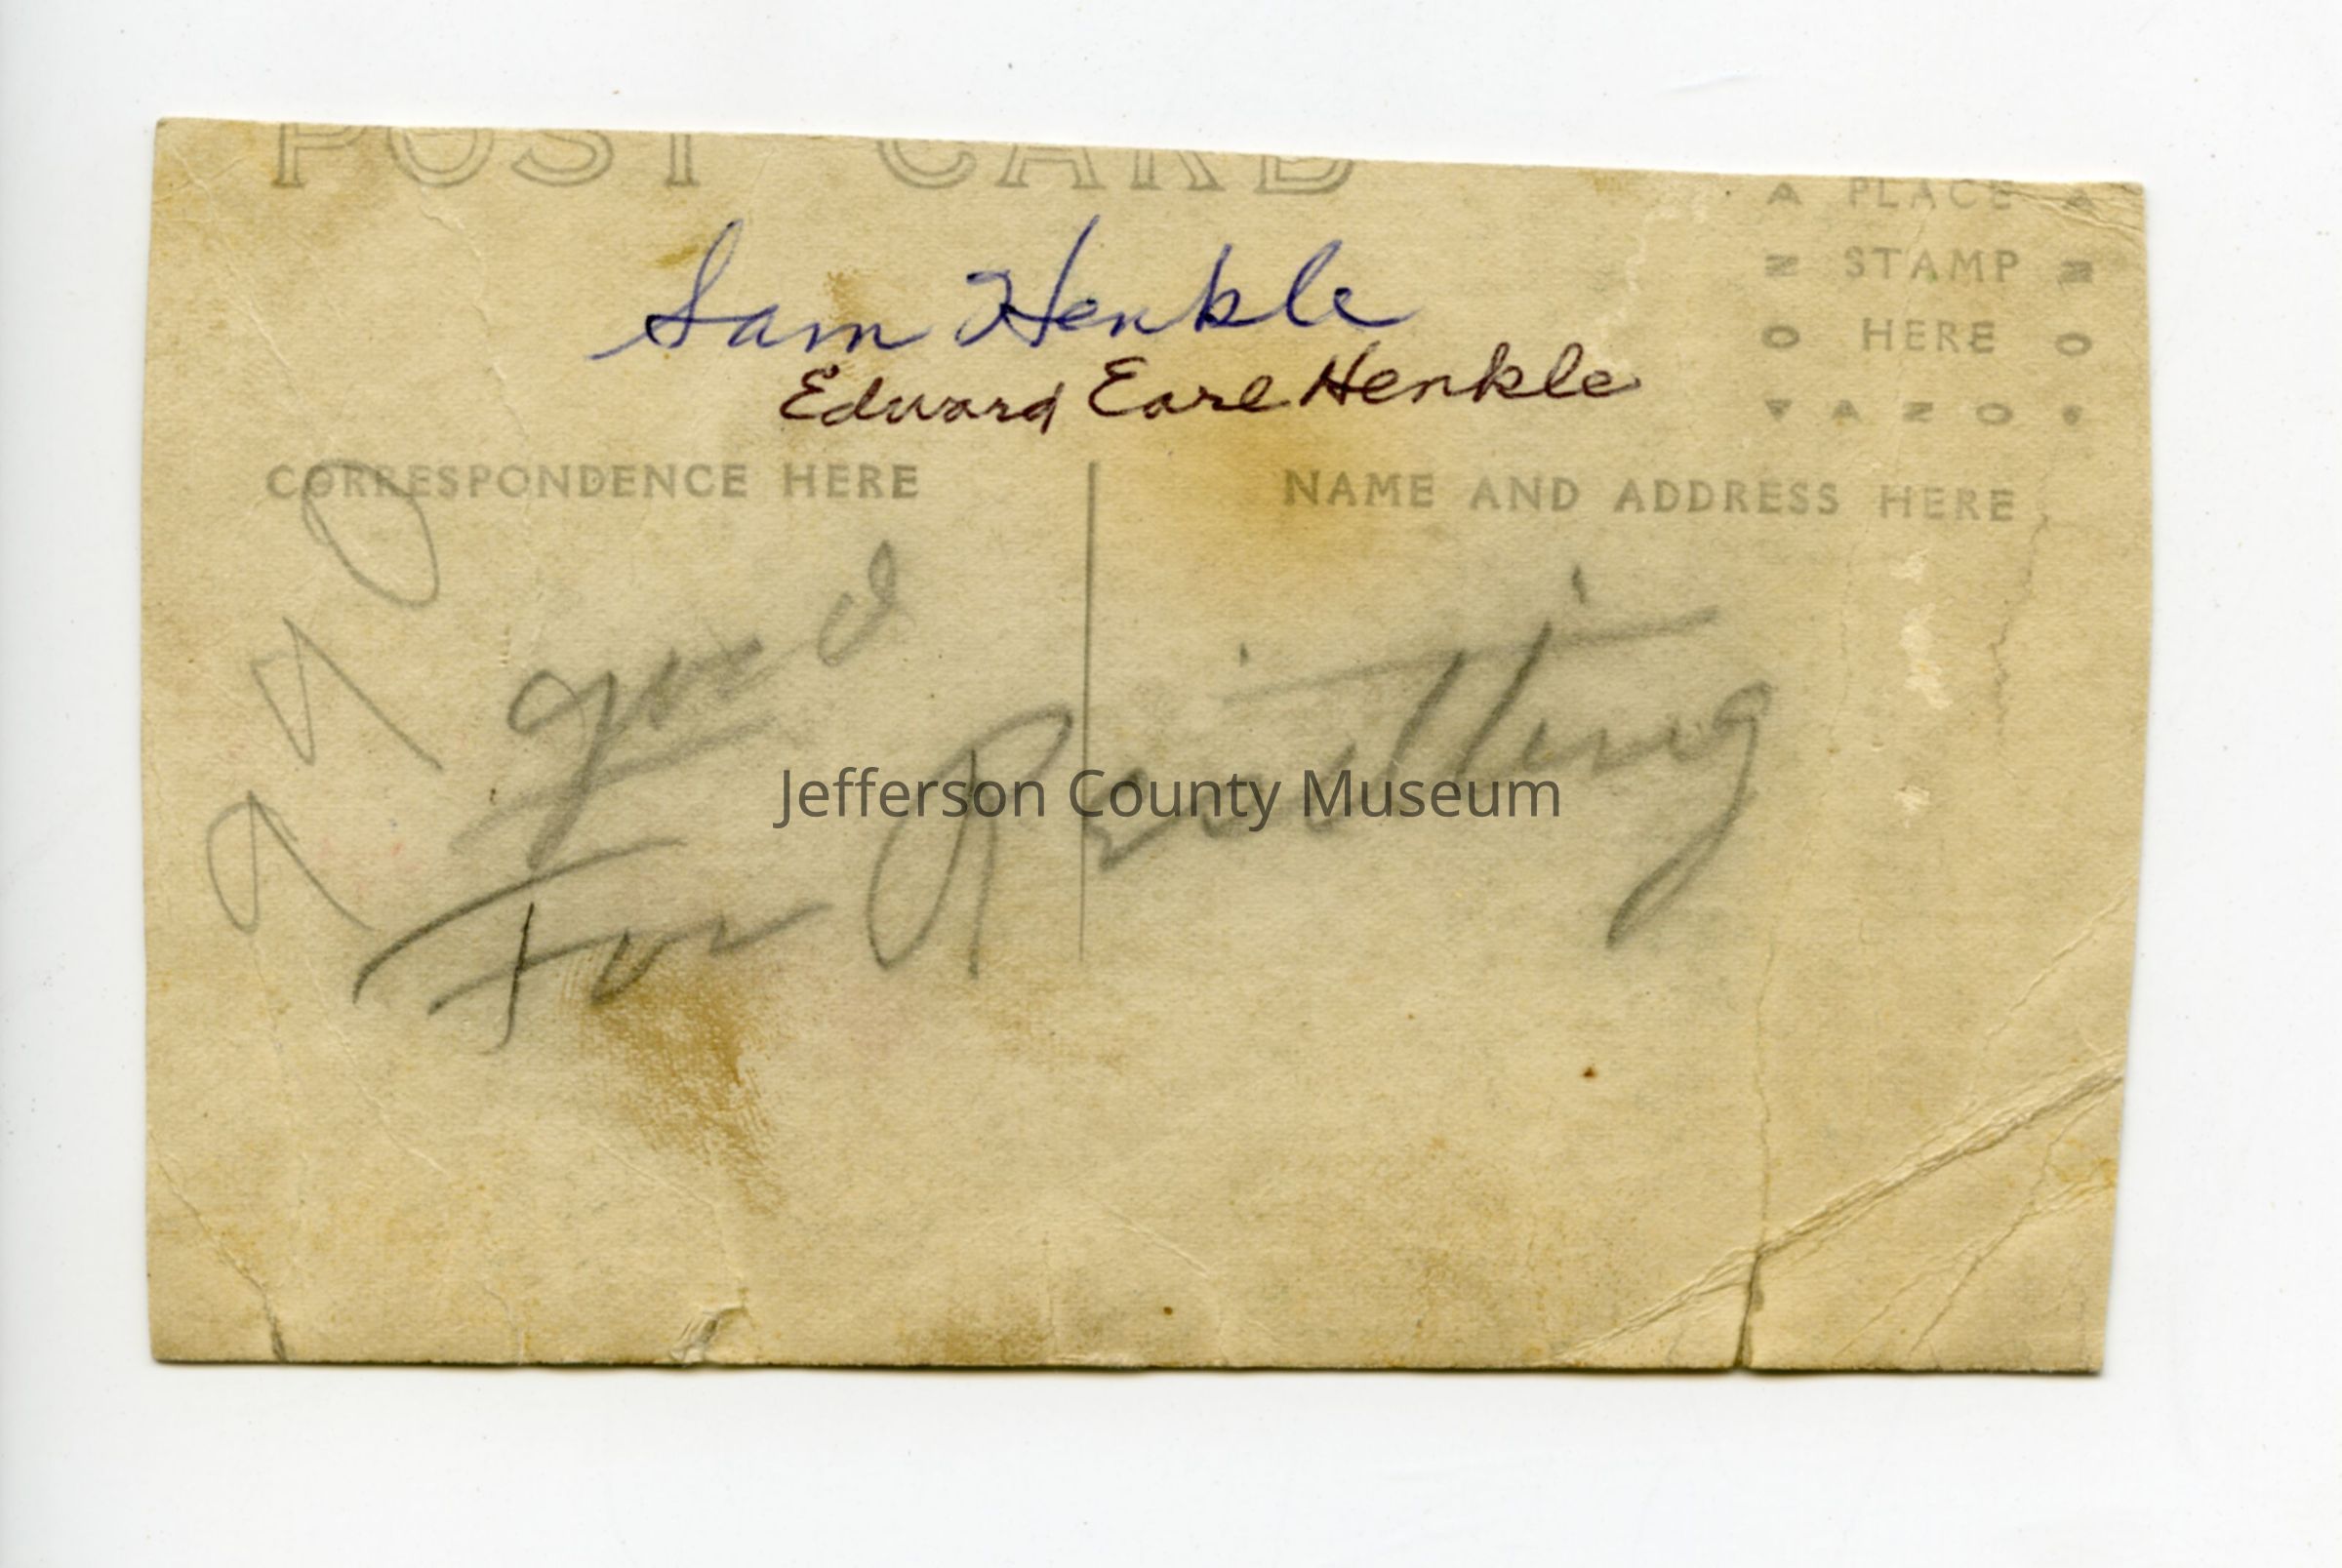 POST CARD
Sam Henkle
Edward Earl Henkle
A PLACE A
Z STAMP Z
O HERE O
A Z O
CORRESPONDENCE HERE
NAME AND ADDRESS HERE
For
Jefferson County Museum